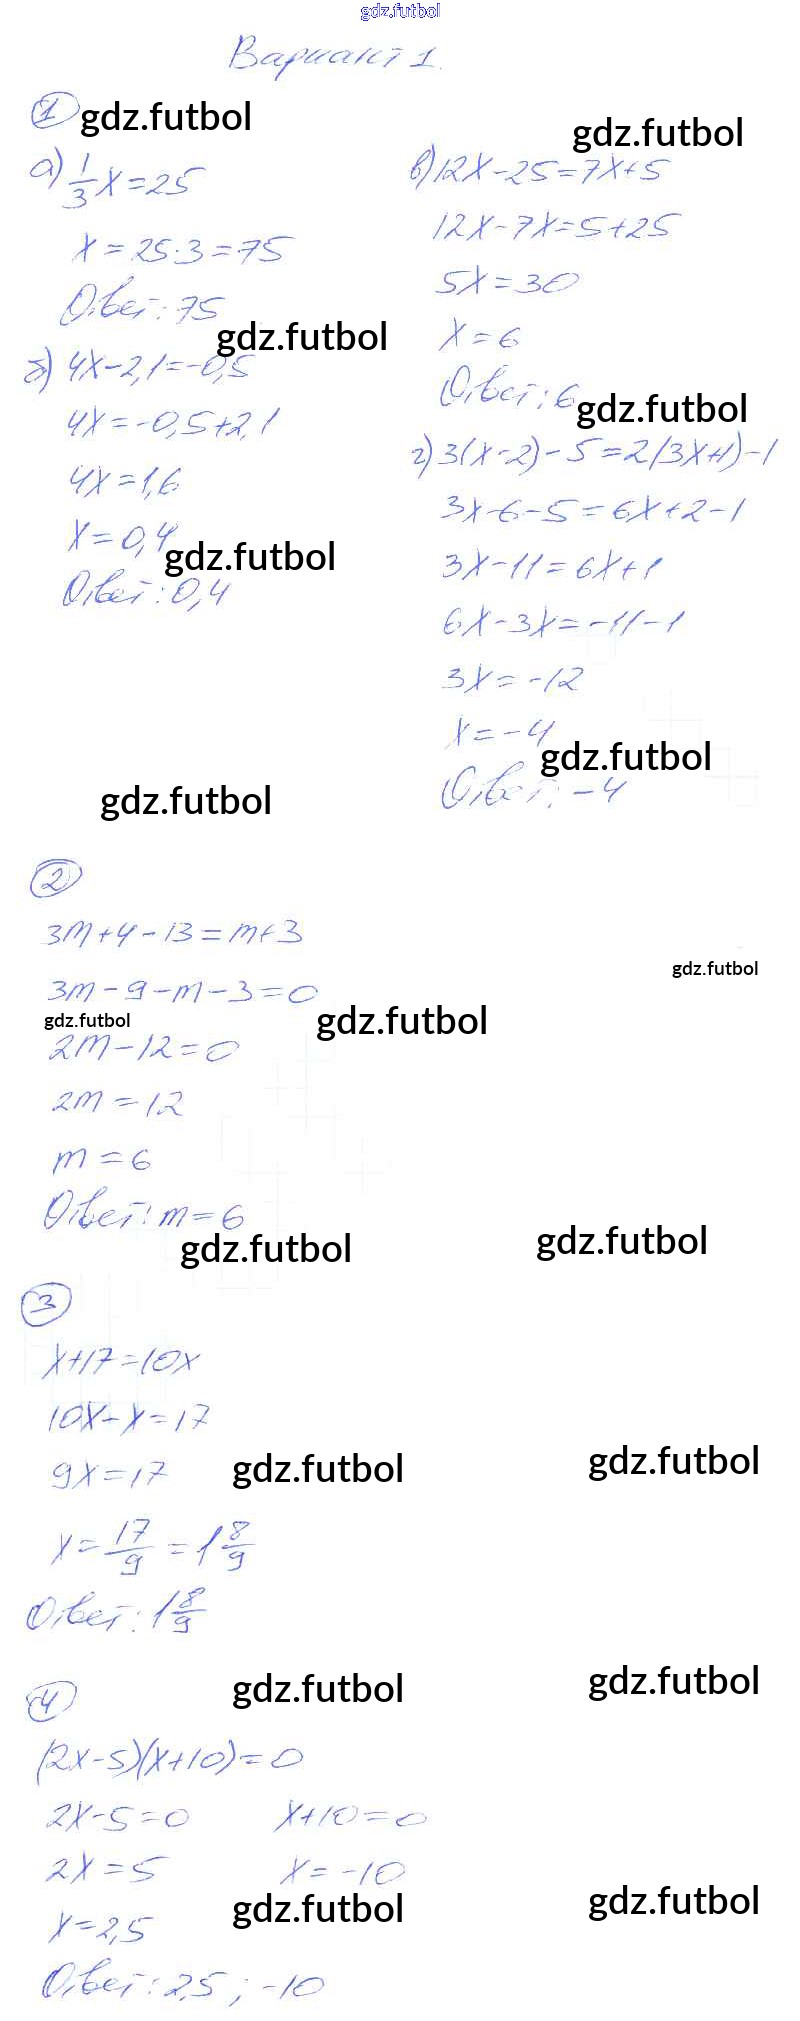 gdz.futbol
Вариант 1.
1
gdz.futbol
а) 1/3 x = 25
x = 25·3 = 75
Ответ: 75
gdz.futbol
б) 4x - 2,1 = -0,5
4x = -0,5 + 2,1
4x = 1,6
x = 0,4
gdz.futbol
Ответ: 0,4
gdz.futbol
gdz.futbol
в) 12x - 25 = 7x + 5
12x - 7x = 5 + 25
5x = 30
x = 6
Ответ: 6
gdz.futbol
г) 3(x - 2) - 5 = 2(3x + 1) - 1
3x - 6 - 5 = 6x + 2 - 1
3x - 11 = 6x + 1
6x - 3x = -11 - 1
3x = -12
x = -4
gdz.futbol
Ответ: -4
2
3m + 4 - 13 = m + 3
gdz.futbol
3m - 9 - m - 3 = 0
gdz.futbol
gdz.futbol
2m - 12 = 0
2m = 12
m = 6
Ответ: m = 6
gdz.futbol
gdz.futbol
3
x + 17 = 10x
10x - x = 17
9x = 17
gdz.futbol
gdz.futbol
x = 17/9 = 1 8/9
Ответ: 1 8/9
gdz.futbol
gdz.futbol
4
(2x - 5)(x + 10) = 0
2x - 5 = 0 x + 10 = 0
2x = 5 x = -10
gdz.futbol
gdz.futbol
x = 2,5
Ответ: 2,5 ; -10